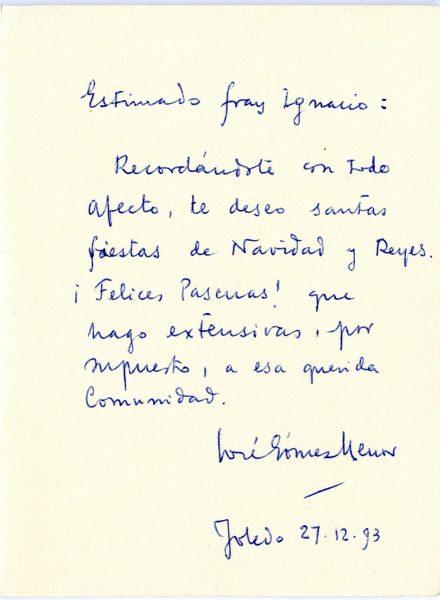 Estimado fray Ignacio:
Recordándote con todo
afecto, te deseo santas
fiestas de Navidad y Reyes.
¡Felices Pascuas! que
hago extensivas, por
supuesto, a esa querida
Comunidad.
José Gómez-Menor
Toledo 27.12.93